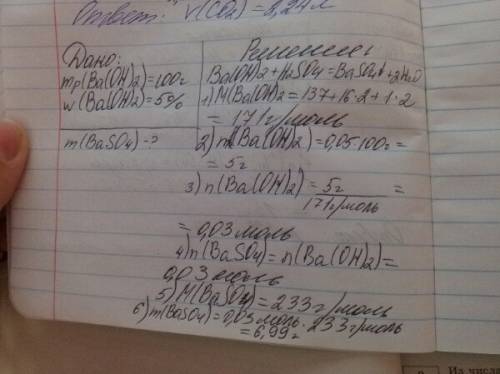 Ответ: V(CO2) = 2,24л
Дано:
mр(Ba(OH)2)=100г
w(Ba(OH)2)=5%
m(BaSO4) -?
Решение:
Ba(OH)2+H2SO4=BaSO4↓+2H2O
1) M(Ba(OH)2=137+16·2+1·2
=171г/моль
2) m(Ba(OH)2)=0,05·100г=
=5г
3) n(Ba(OH)2)=5г/171г/моль =
=0,03 моль
4) n(BaSO4)=n(Ba(OH)2)=
0,03 моль
5) M(BaSO4)=233г/моль
6) m(BaSO4)=0,03моль·233г/моль
=6,99г